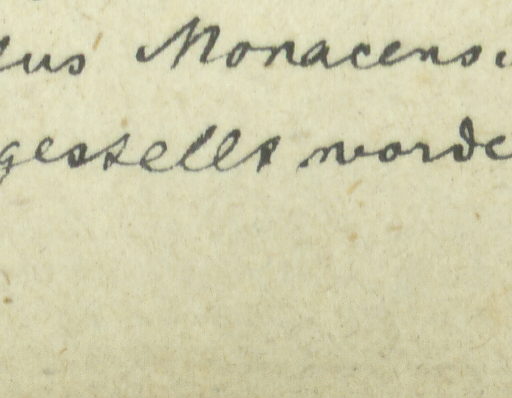 lus Monacensi
gestellt worde